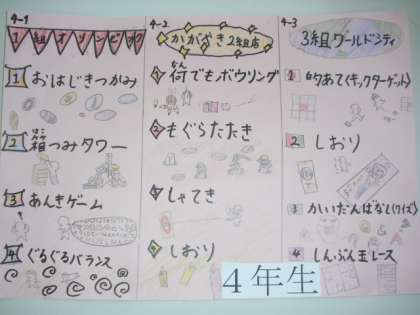 4-1
1組オリンピック
1 おはじきつかみ
2 箱つみタワー
はこ
3 あんきゲーム
4 ぐるぐるバランス
4-2
かがやき2組店
1 何でもボウリング
なん
2 もぐらたたき
しゃてき
しおり
4-3
3組ワールドシティ
1 的あてくキックターゲット)
2 しおり
3 かいだんばなし(クイズ)
4 しんぶん玉レース
4年生